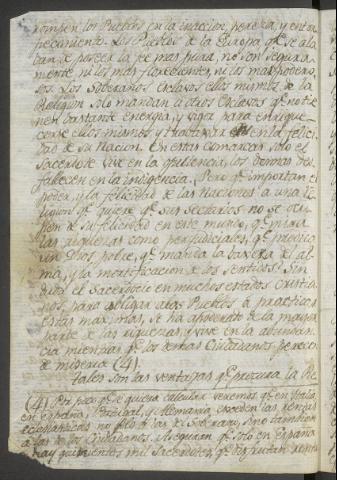 rompen los Pueblos en la inaccion, pereza, y entor
pecimiento. Los Pueblos de la Europa qe. se ala
ban de poseer la fe mas pura, no son segura
mente ni los mas florecientes, ni los mas podero
sos. Los Soberanos Esclavos ellos mismos de la
Religion solo mandan á otros Esclavos qe. no tie
nen bastante energia, y vigor para enrique
cerse ellos mismos y trabajar en la felici
dad de su Nacion. En estas comarcas solo el
Sacerdote vive en la opulencia, los demas des
fallecen en la indigencia. Pero qe. importan el
poder, y la felicidad de las Naciones a una Re
ligion qe. quiere qe. sus Sectarios no se ocu
pen de su felicidad en este mundo, qe. mira
las riquezas como perjudiciales, qe. predica
un Dios pobre, qe. manda la baxeza de al
ma, y la mortificacion de los sentidos? Sin
duda el Sacerdocio en muchos estados cristia
nos, para obligar a los Pueblos á practicar
estas maximas, se ha apoderado de la mayor
parte de las riquezas, y vive en la abundan
cia mientras qe. los demas Ciudadanos perecen
de miseria (4).
Tales son las ventajas qe. procura la Re
(4) Por poco qe. se quiera calcular veremos qe. en Italia,
en España, Portugal, y Alemania exceden las rentas
eclesiasticas no solo á las del Soberano, sino tambien
á las de los Ciudadanos. Aseguran qe. solo en España
hay quinientos mil Sacerdotes, qe. disfrutan rentas